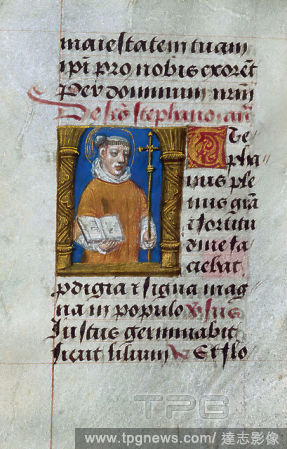 maiestatem tuam
ip̃i pro nobis exorẽt
Per dominum nr̃m
De sc̃o stephano añ
Ste
pha
nus ple
nus grã
⁊ fortitu
dine fa
ciebat
pdigia ⁊ signa mag
na in populo v̓sus
Iustus germinabit
sicut lilium ℟ Et flo
TPG
www.tpgnews.com/ 達志影像